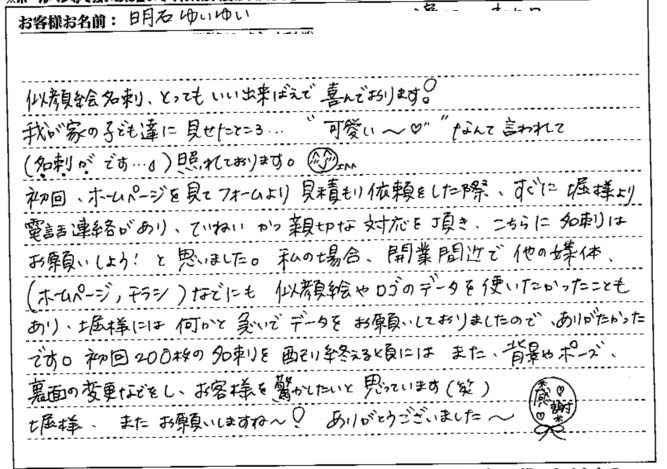 お客様お名前： 明石ゆいゆい
似顔絵名刺、とってもいい出来ばえで喜んでおります!
我が家の子ども達に見せたところ… "可愛い〜♡" なんて言われて
(名刺がです…♩) 照れております。
初回、ホームページを見てフォームより見積もり依頼をした際、すぐに堀様より
電話連絡があり、ていねいかつ親切な対応を頂き、こちらに名刺は
お願いしよう! と思いました。私の場合、開業間近で他の媒体、
(ホームページ, チラシ) などにも似顔絵やロゴのデータを使いたかったことも
あり、堀様には何かと急いでデータをお願いしておりましたので、ありがたかった
です。初回200枚の名刺を配り終える頃にはまた、背景やポーズ、
裏面の変更などをし、お客様を驚かしたいと思っています(笑)
堀様、またお願いしますね〜! ありがとうございました〜
感謝